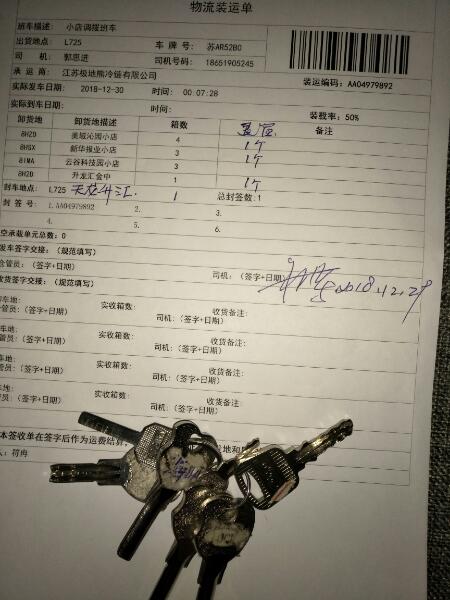 物流装运单
班车描述: 小店调拨班车
出货地点: L725 车 牌 号: 苏AR52B0
司 机: 郭思进 司机号码: 18651905245
承 运 商: 江苏极地熊冷链有限公司 装运编码: AA04979892
实际发车日期: 2018-12-30 时间: 00:07:28
实际到车日期: 时间: 装载率: 50%
卸货地 卸货地描述 箱数 备注
8HZD 美域沁园小店 4
8HGX 新华报业小店 3 1个
81MA 云谷科技园小店 3 1个
8H2D 升龙汇金中 1 1个
封车地点: L725 天龙升汇. 1 总封签数:1
封 签 号: 1.AA04979892 2. 3.
4. 5. 6.
空承载单元总数: 0
发车签字交接: (规范填写)
仓管员: (签字+日期) 司机: (签字+日期) 2018.12.29
收货签字交接: (规范填写)
卸车地: 实收箱数: 收货备注:
仓管员: (签字+日期) 司机: (签字+日期)
卸车地: 实收箱数: 收货备注:
管员: (签字+日期) 司机: (签字+日期)
车地: 实收箱数: 收货备注:
管员: (签字+日期) 司机: (签字+日期)
车地: 实收箱数: 收货备注:
员: (签字+日期) 司机: (签字+日期)
本签收单在签字后作为运费结算
人: 符冉